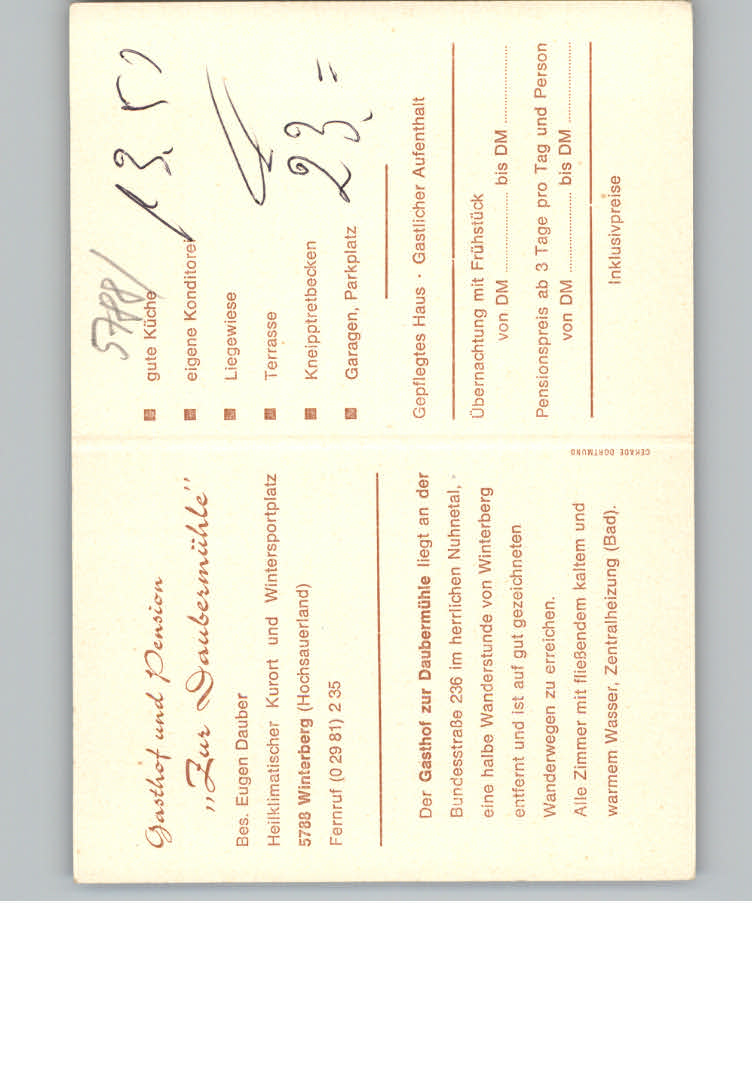 Gasthof und Pension
„Zur Daubermühle"
Bes. Eugen Dauber
Heilklimatischer Kurort und Wintersportplatz
5788 Winterberg (Hochsauerland)
Fernruf (0 29 81) 2 35
Der Gasthof zur Daubermühle liegt an der
Bundesstraße 236 im herrlichen Nuhnetal,
eine halbe Wanderstunde von Winterberg
entfernt und ist auf gut gezeichneten
Wanderwegen zu erreichen.
Alle Zimmer mit fließendem kaltem und
warmem Wasser, Zentralheizung (Bad).
GEHADE DORTMUND
5788/
gute Küche
eigene Konditorei
Liegewiese
Terrasse
Kneipptretbecken
Garagen, Parkplatz
13.50
23.=
Gepflegtes Haus · Gastlicher Aufenthalt
Übernachtung mit Frühstück
von DM .................... bis DM ....................
Pensionspreis ab 3 Tage pro Tag und Person
von DM .................... bis DM ....................
Inklusivpreise